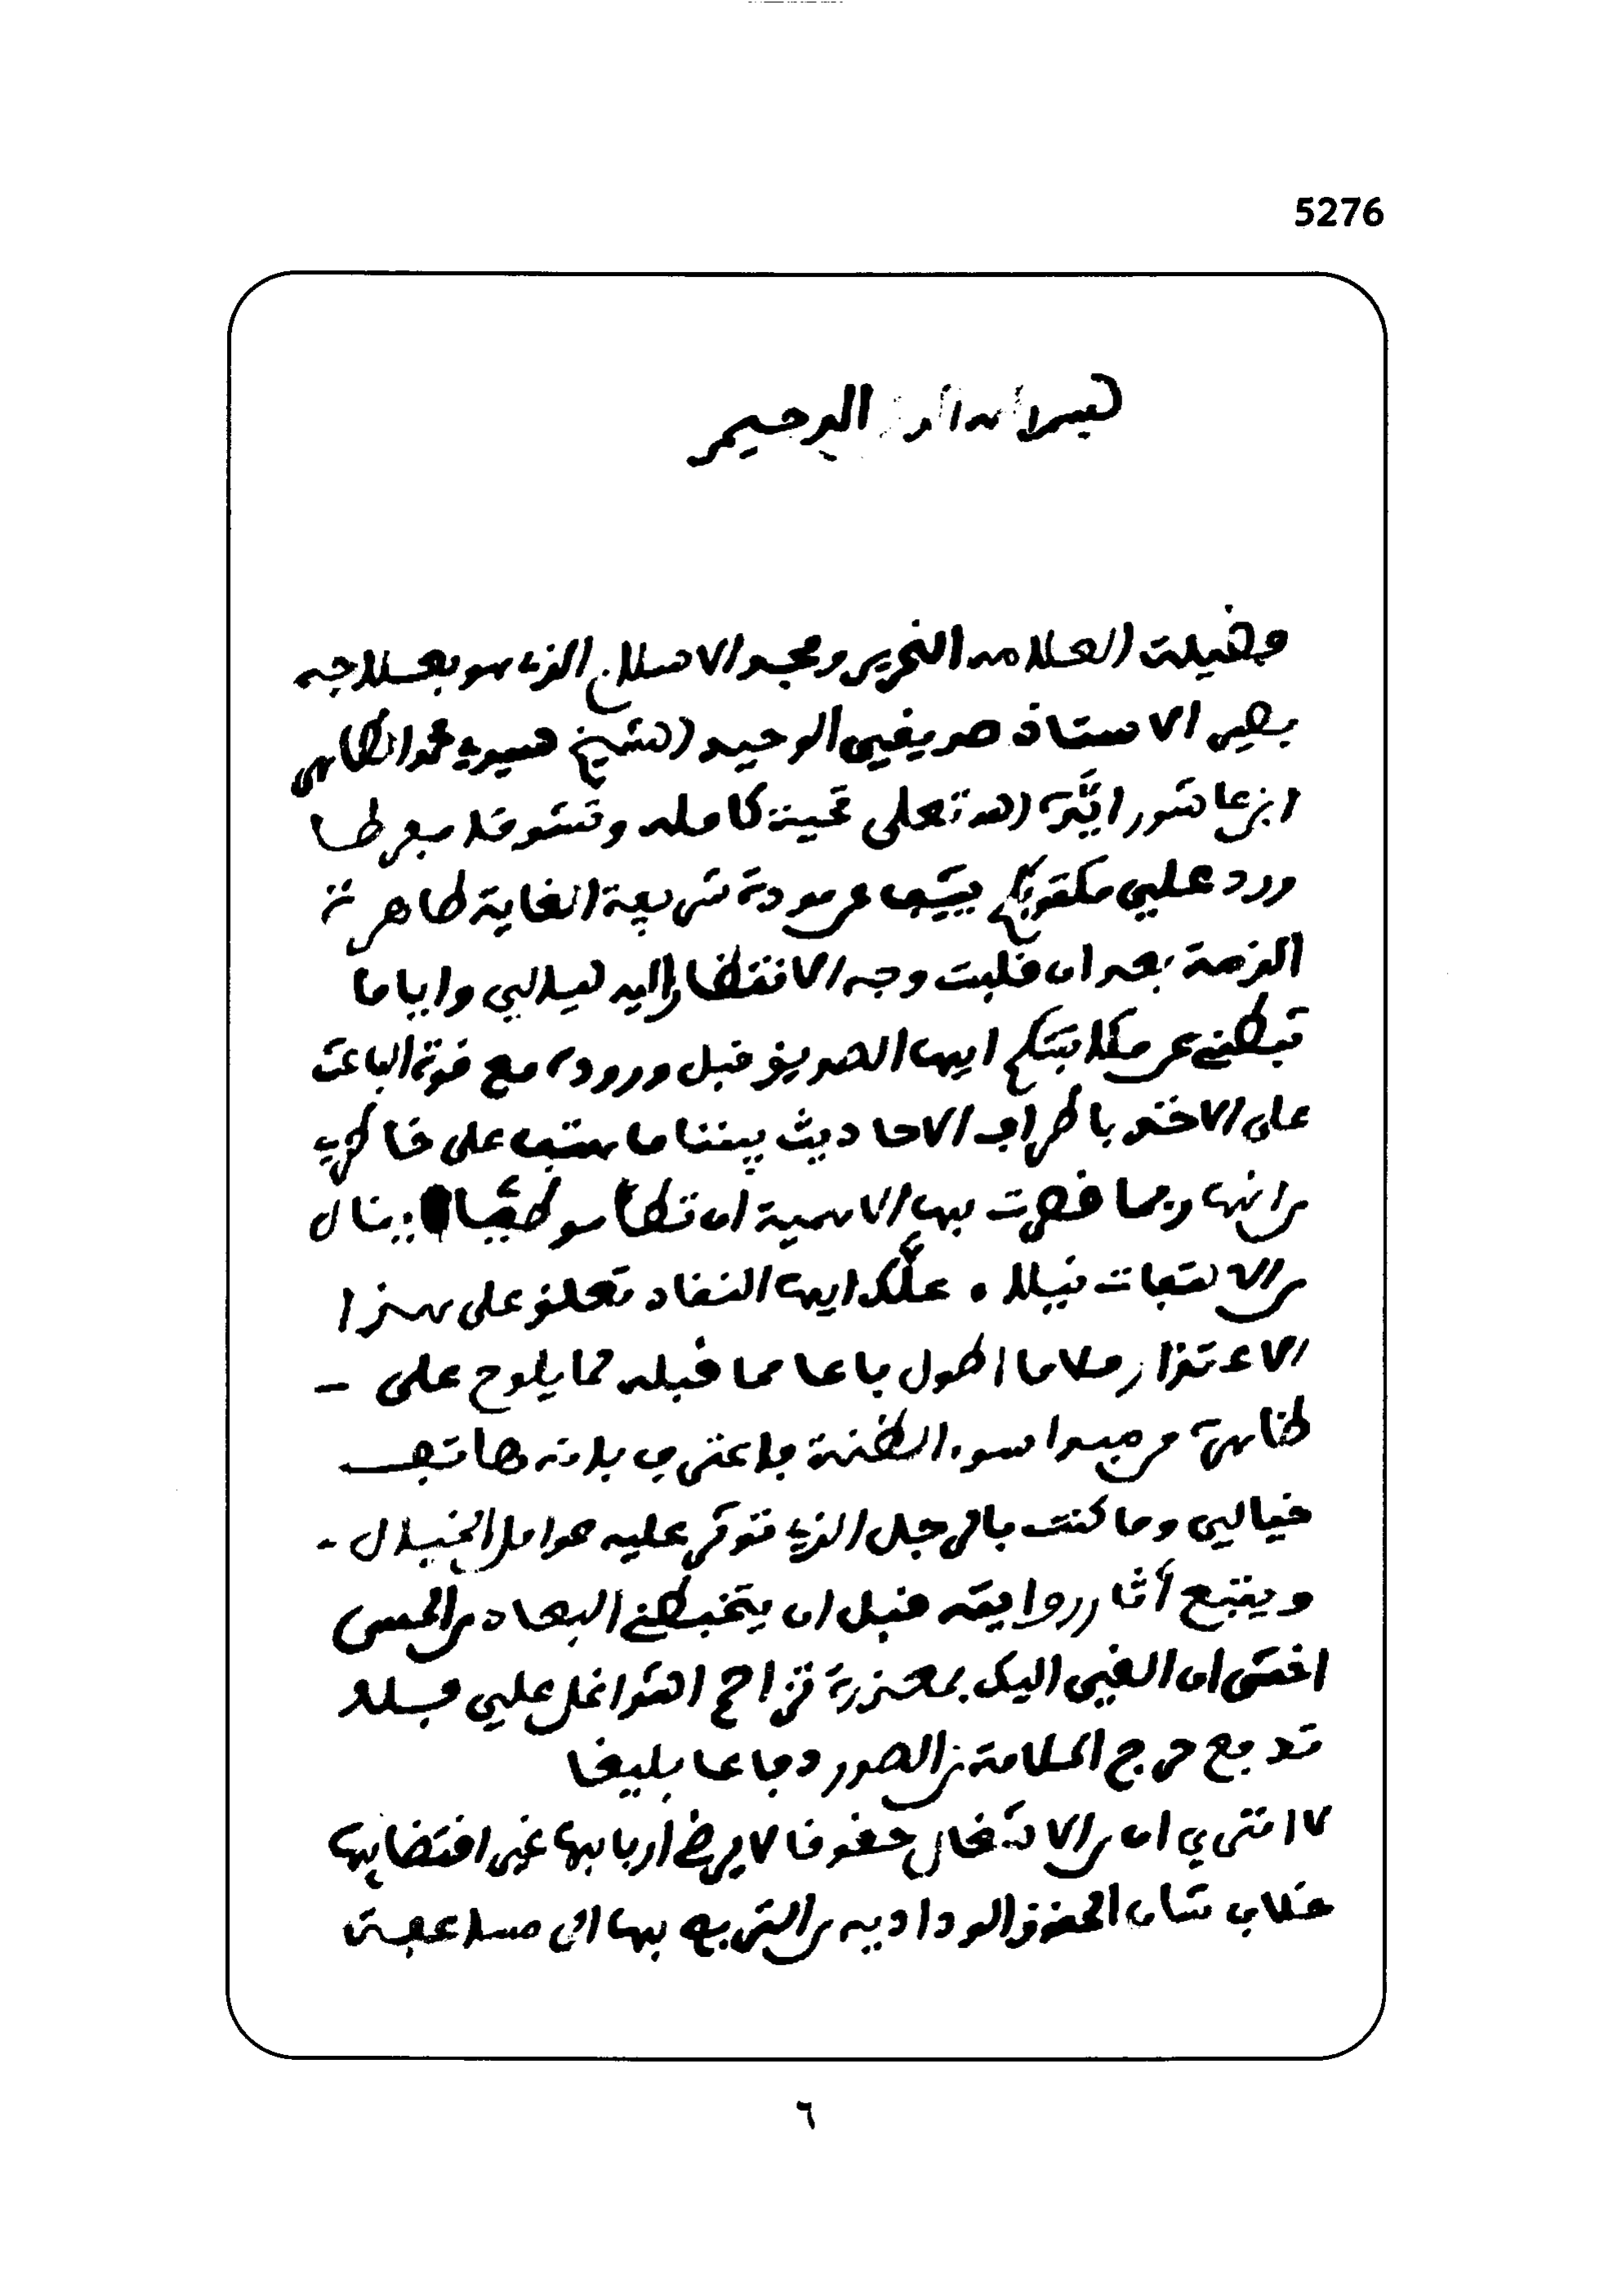 5276
بسم الله الرحيم
فضيلة العلامة النحرير ومجد الاسلام الذي هو بعلاجه
بصير الاستاذ صديقي الوحيد الشيخ سيدي محمد الطاهر
ابن عاشور ايّده الله تعلى تحية كاملة وتشوقا مفرطا
ورد علي مكتوبكم يشف عن مودة شريفة الغاية طاهرة
الذمة بعد ان قلبت وجه الانتظار اليه ليالي واياما
تبطني عن مكاتبتكم ايها الصديق قبل وروده مع قوة الباعث
على الاخذ باطراف الاحاديث بيننا ما هتف على خاطري
من انها ربما قصرت بها الاهمية ان تطأ موطئا ينال
من الالتفات نيلا . علّك ايها النقاد تعلق على هذا
الاعتذار ملاما اطول باعا مما قبله لما يلوح على -
ظاهره من مبدا سوء الظنة فاعترف بانه هاتف
خيالي وما كنت بالرجل الذي تتوكر عليه حوامل الخيال -
ويتبع آثار روايته قبل ان يتخبطني البعاد من الحسن
اخشى ان القي اليك بمعذرة تزاحم الشواغل علي فلا
تدفع حرج الملامة من الصدور دفاعا بليغا
لا امتري ان من الاشغال حقوقا لا يرضي اربابها غير اقتضايها
خلاف شان الحقوق الودادية من التربص بها الى مساعفة
٦